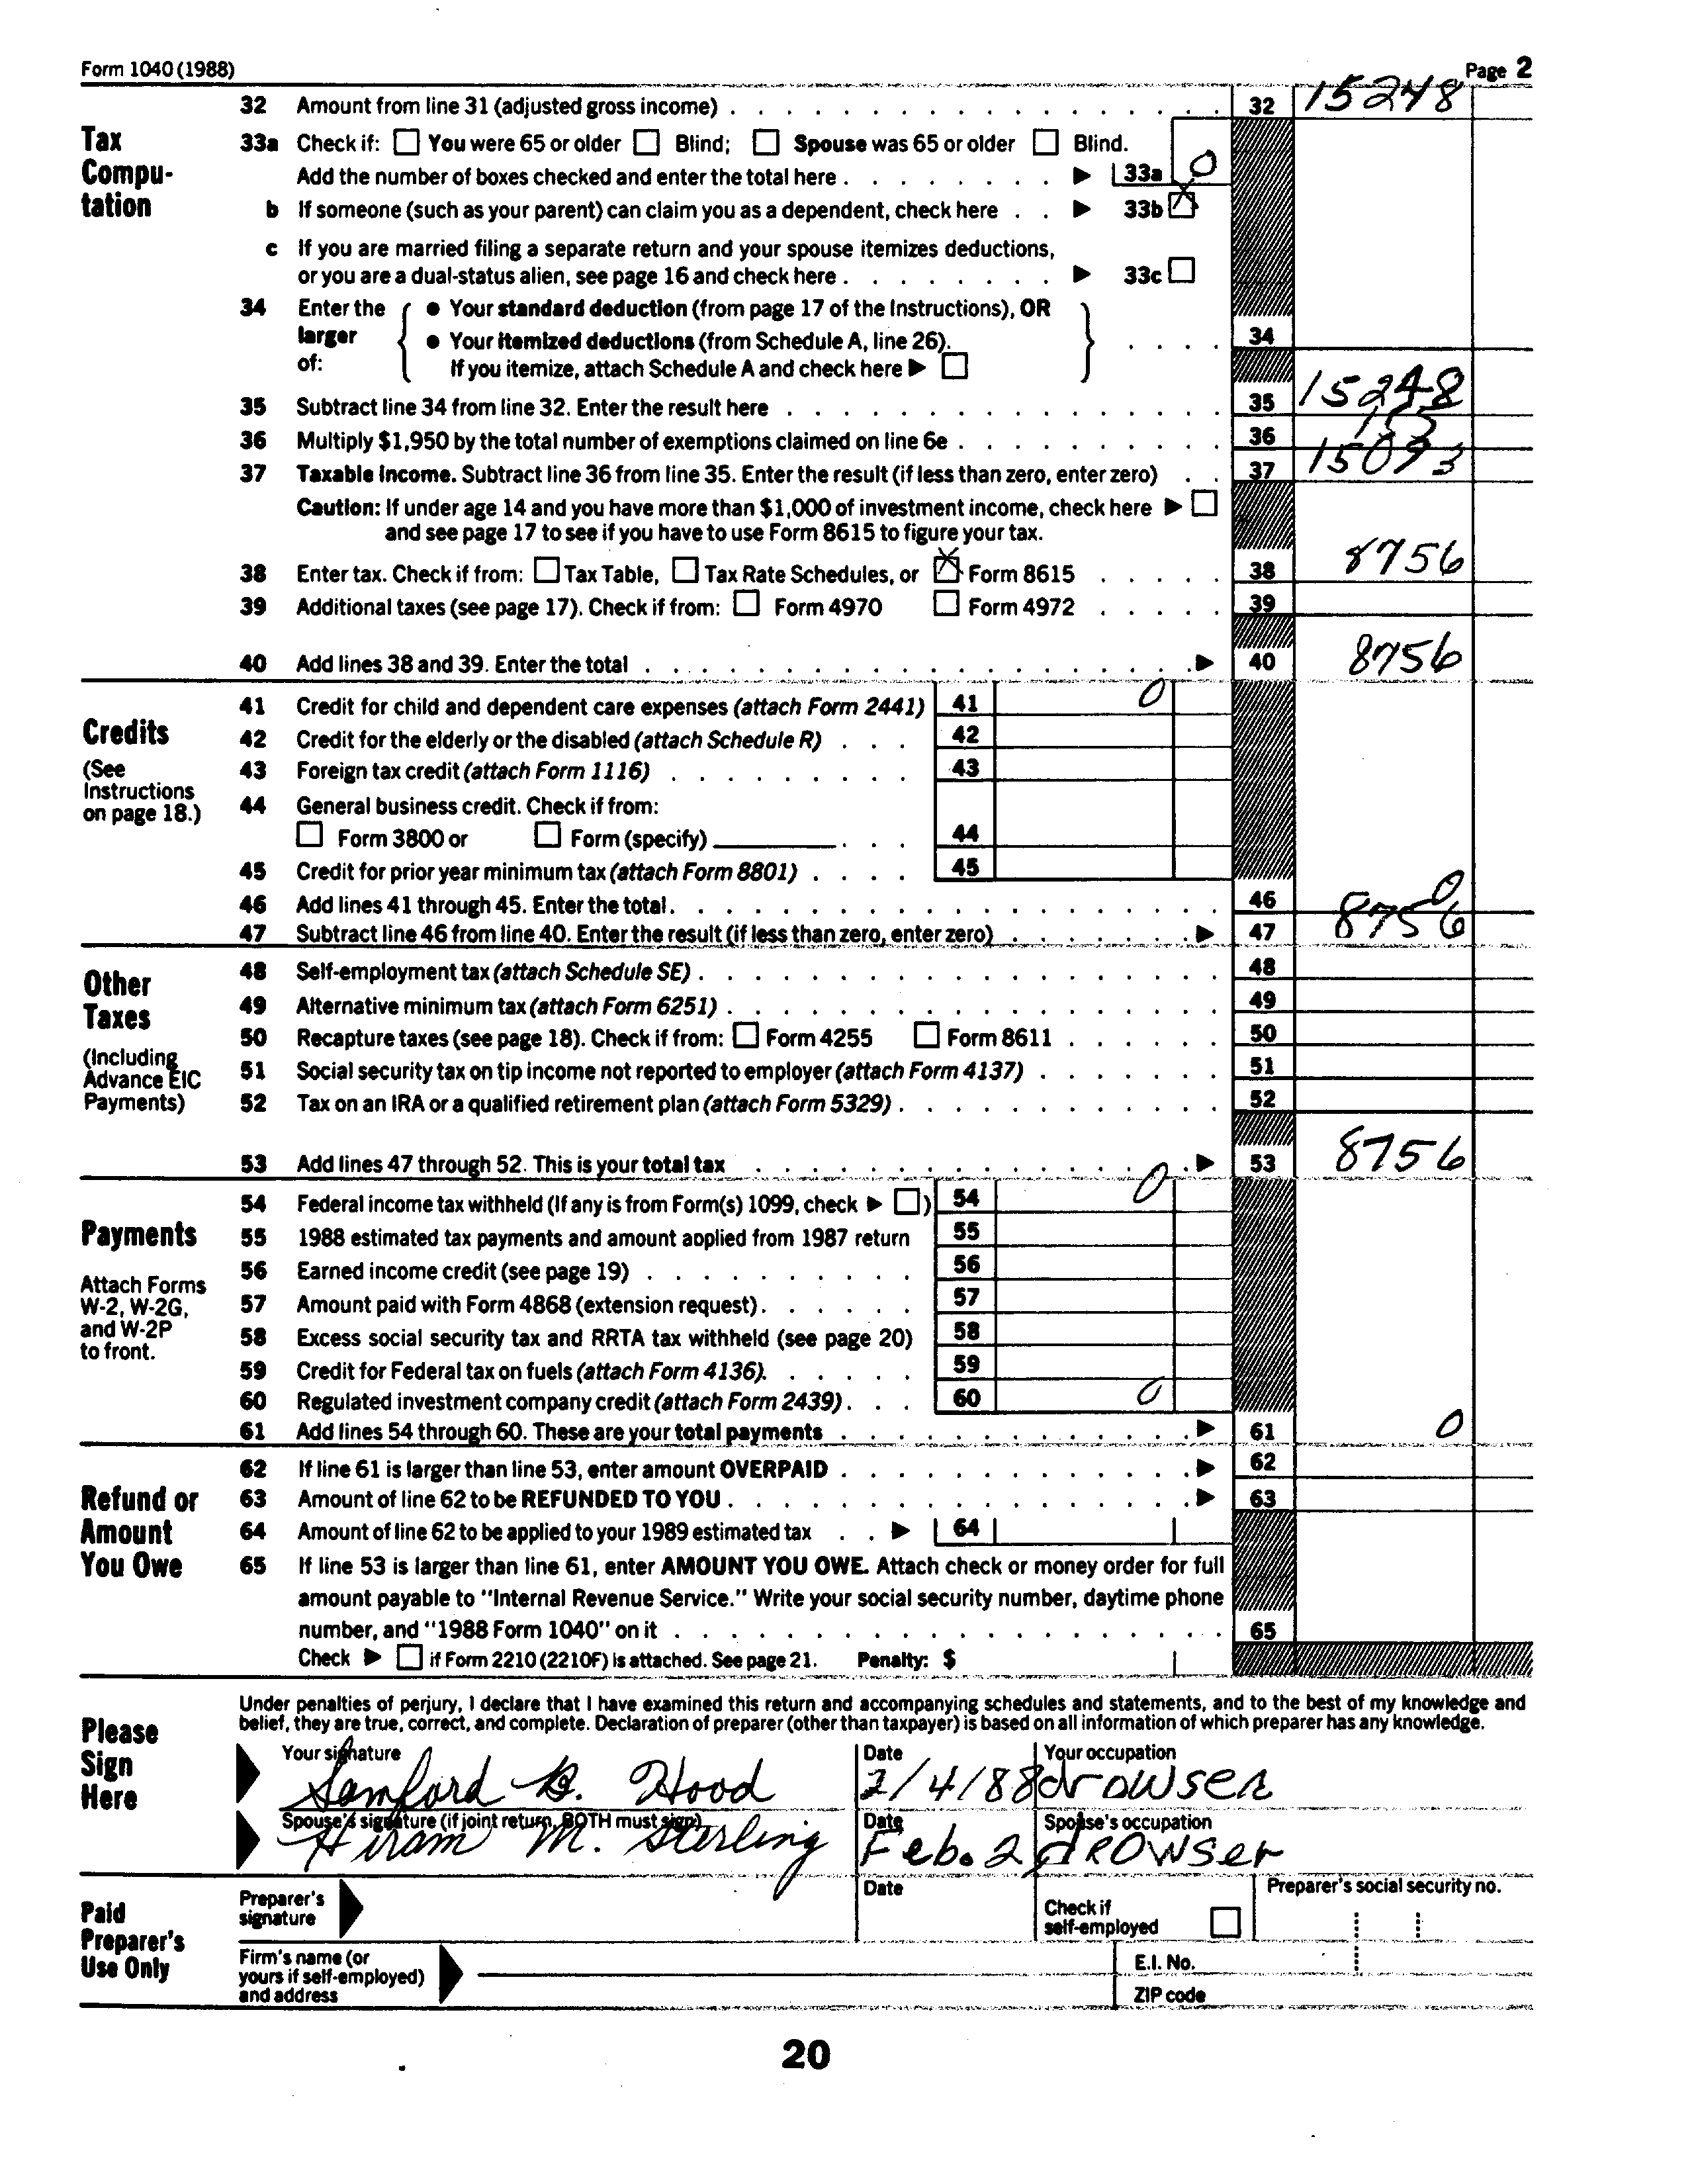 Form 1040 (1988) Page 2
Tax Compu-tation
32 Amount from line 31 (adjusted gross income) 32 15248
33a Check if: You were 65 or older Blind; Spouse was 65 or older Blind.
Add the number of boxes checked and enter the total here 33a 0
b If someone (such as your parent) can claim you as a dependent, check here 33b X
c If you are married filing a separate return and your spouse itemizes deductions,
or you are a dual-status alien, see page 16 and check here 33c
34 Enter the larger of:
● Your standard deduction (from page 17 of the Instructions), OR
● Your itemized deductions (from Schedule A, line 26).
If you itemize, attach Schedule A and check here 34
35 Subtract line 34 from line 32. Enter the result here 35 15248
36 Multiply $1,950 by the total number of exemptions claimed on line 6e 36 155
37 Taxable Income. Subtract line 36 from line 35. Enter the result (if less than zero, enter zero) 37 15093
Caution: If under age 14 and you have more than $1,000 of investment income, check here
and see page 17 to see if you have to use Form 8615 to figure your tax.
38 Enter tax. Check if from: Tax Table, Tax Rate Schedules, or X Form 8615 38 8756
39 Additional taxes (see page 17). Check if from: Form 4970 Form 4972 39
40 Add lines 38 and 39. Enter the total 40 8756
Credits
(See Instructions on page 18.)
41 Credit for child and dependent care expenses (attach Form 2441) 41 0
42 Credit for the elderly or the disabled (attach Schedule R) 42
43 Foreign tax credit (attach Form 1116) 43
44 General business credit. Check if from:
Form 3800 or Form (specify) 44
45 Credit for prior year minimum tax (attach Form 8801) 45
46 Add lines 41 through 45. Enter the total 46 0
47 Subtract line 46 from line 40. Enter the result (if less than zero, enter zero) 47 8756
Other Taxes
(Including Advance EIC Payments)
48 Self-employment tax (attach Schedule SE) 48
49 Alternative minimum tax (attach Form 6251) 49
50 Recapture taxes (see page 18). Check if from: Form 4255 Form 8611 50
51 Social security tax on tip income not reported to employer (attach Form 4137) 51
52 Tax on an IRA or a qualified retirement plan (attach Form 5329) 52
53 Add lines 47 through 52. This is your total tax 53 8756
Payments
Attach Forms W-2, W-2G, and W-2P to front.
54 Federal income tax withheld (If any is from Form(s) 1099, check ) 54 0
55 1988 estimated tax payments and amount applied from 1987 return 55
56 Earned income credit (see page 19) 56
57 Amount paid with Form 4868 (extension request) 57
58 Excess social security tax and RRTA tax withheld (see page 20) 58
59 Credit for Federal tax on fuels (attach Form 4136) 59
60 Regulated investment company credit (attach Form 2439) 60 0
61 Add lines 54 through 60. These are your total payments 61 0
Refund or Amount You Owe
62 If line 61 is larger than line 53, enter amount OVERPAID 62
63 Amount of line 62 to be REFUNDED TO YOU 63
64 Amount of line 62 to be applied to your 1989 estimated tax 64
65 If line 53 is larger than line 61, enter AMOUNT YOU OWE. Attach check or money order for full
amount payable to "Internal Revenue Service." Write your social security number, daytime phone
number, and "1988 Form 1040" on it 65
Check if Form 2210 (2210F) is attached. See page 21. Penalty: $
Please Sign Here
Under penalties of perjury, I declare that I have examined this return and accompanying schedules and statements, and to the best of my knowledge and
belief, they are true, correct, and complete. Declaration of preparer (other than taxpayer) is based on all information of which preparer has any knowledge.
Your signature Date Your occupation
Samford B. Hood 2/4/88 drowser
Spouse's signature (if joint return, BOTH must sign) Date Spouse's occupation
Hiram M. Sterling Feb. 2 dROWSer
Paid Preparer's Use Only
Preparer's signature Date Check if self-employed Preparer's social security no.
Firm's name (or yours if self-employed) and address E.I. No.
ZIP code
20